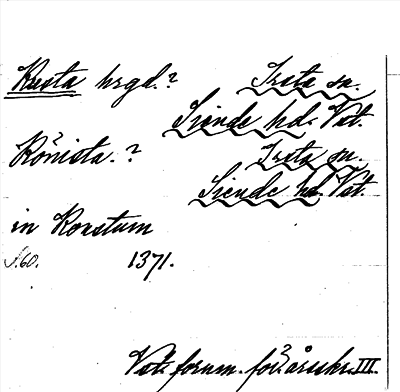 Kusta hrgd.? Irsta sn.
Siende hd. Vst.
Könista. ? Irsta sn.
Siende hd. Vst.
in Konstum
S. 60. 1371.
Vst. fornm. för:s årsskr. III.